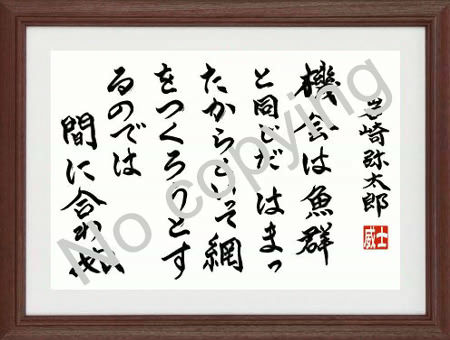 岩崎弥太郎
威士
機会は魚群
と同じだ はまっ
たからといって網
をつくろうとす
るのでは
間に合わぬ
No copying